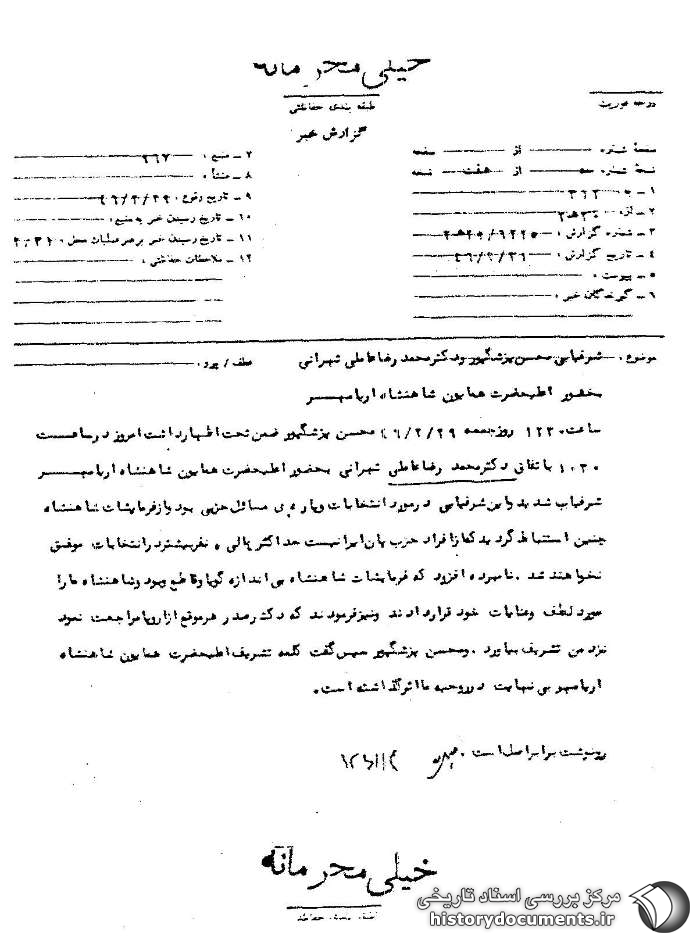 خیلی محرمانه
طبقه بندی حفاظتی
درجه فوریت
گزارش خبر
صفحهٔ شماره از صفحه
نسخهٔ شماره از هفت نسخه
۱ -
۲ - از :
۳ - شماره گزارش :
۴ - تاریخ گزارش :
۵ - پیوست :
۶ - گیرندگان خبر :
۷ - منبع :
۸ - منشأ :
۹ - تاریخ وقوع :
۱۰ - تاریخ رسیدن خبر به منبع :
۱۱ - تاریخ رسیدن خبر برهبر عملیات محل
۱۲ - ملاحظات حفاظتی :
موضوع : شرفیابی محسن پزشگپور و دکتر محمد رضا عاملی تهرانی عطف / پیرو :
بحضور اعلیحضرت همایون شاهنشاه اریامهر
ساعت روز جمعه ۴۶/۲/۲۹ محسن پزشگپور ضمن تحت اظهار داشت امروز در ساعت
۱۰۳۰ باتفاق دکتر محمد رضا عاملی تهرانی بحضور اعلیحضرت همایون شاهنشاه اریامهر
شرفیاب شدید و این شرفیابی در مورد انتخابات و پاره ی مسائل حزبی بود و از فرمایشات شاهنشاه
چنین استنباط گردید که از افراد حزب پان ایرانیست حداکثر نفر بیشتر در انتخابات موفق
نخواهند شد . نامبرده افزود که فرمایشات شاهنشاه بی اندازه گویا و قاطع وبود و شاهنشاه ما را
مورد لطف و عنایات خود قرار دادند ونیز فرمودند که دکتر صدر هر موقع از اروپا مراجعت نمود
نزد من تشریف بیاورد . و محسن پزشگپور سپس گفت کلمه تشریف اعلیحضرت همایون شاهنشاه
اریامهر بی نهایت در روحیه ما اثر گذاشته است .
رونوشت برابر اصل است .
خیلی محرمانه
طبقه بندی حفاظتی
مرکز بررسی اسناد تاریخی
historydocuments.ir